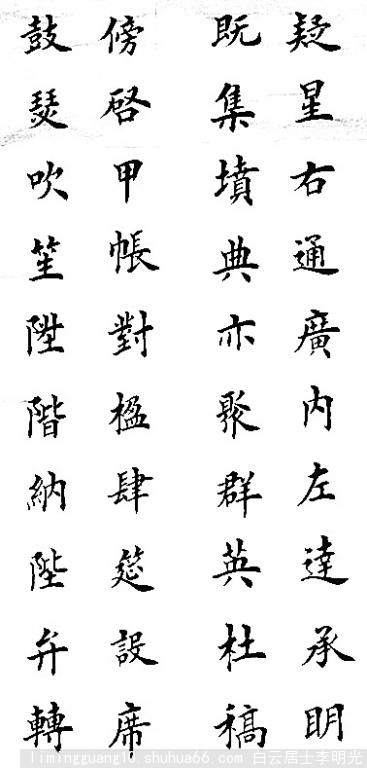 疑星右通廣内左達承明
既集墳典亦聚群英杜稿
傍啓甲帳對楹肆筵設席
鼓瑟吹笙陞階納陛弁轉
limingguang10.shuhua66.com 白云居士李明光